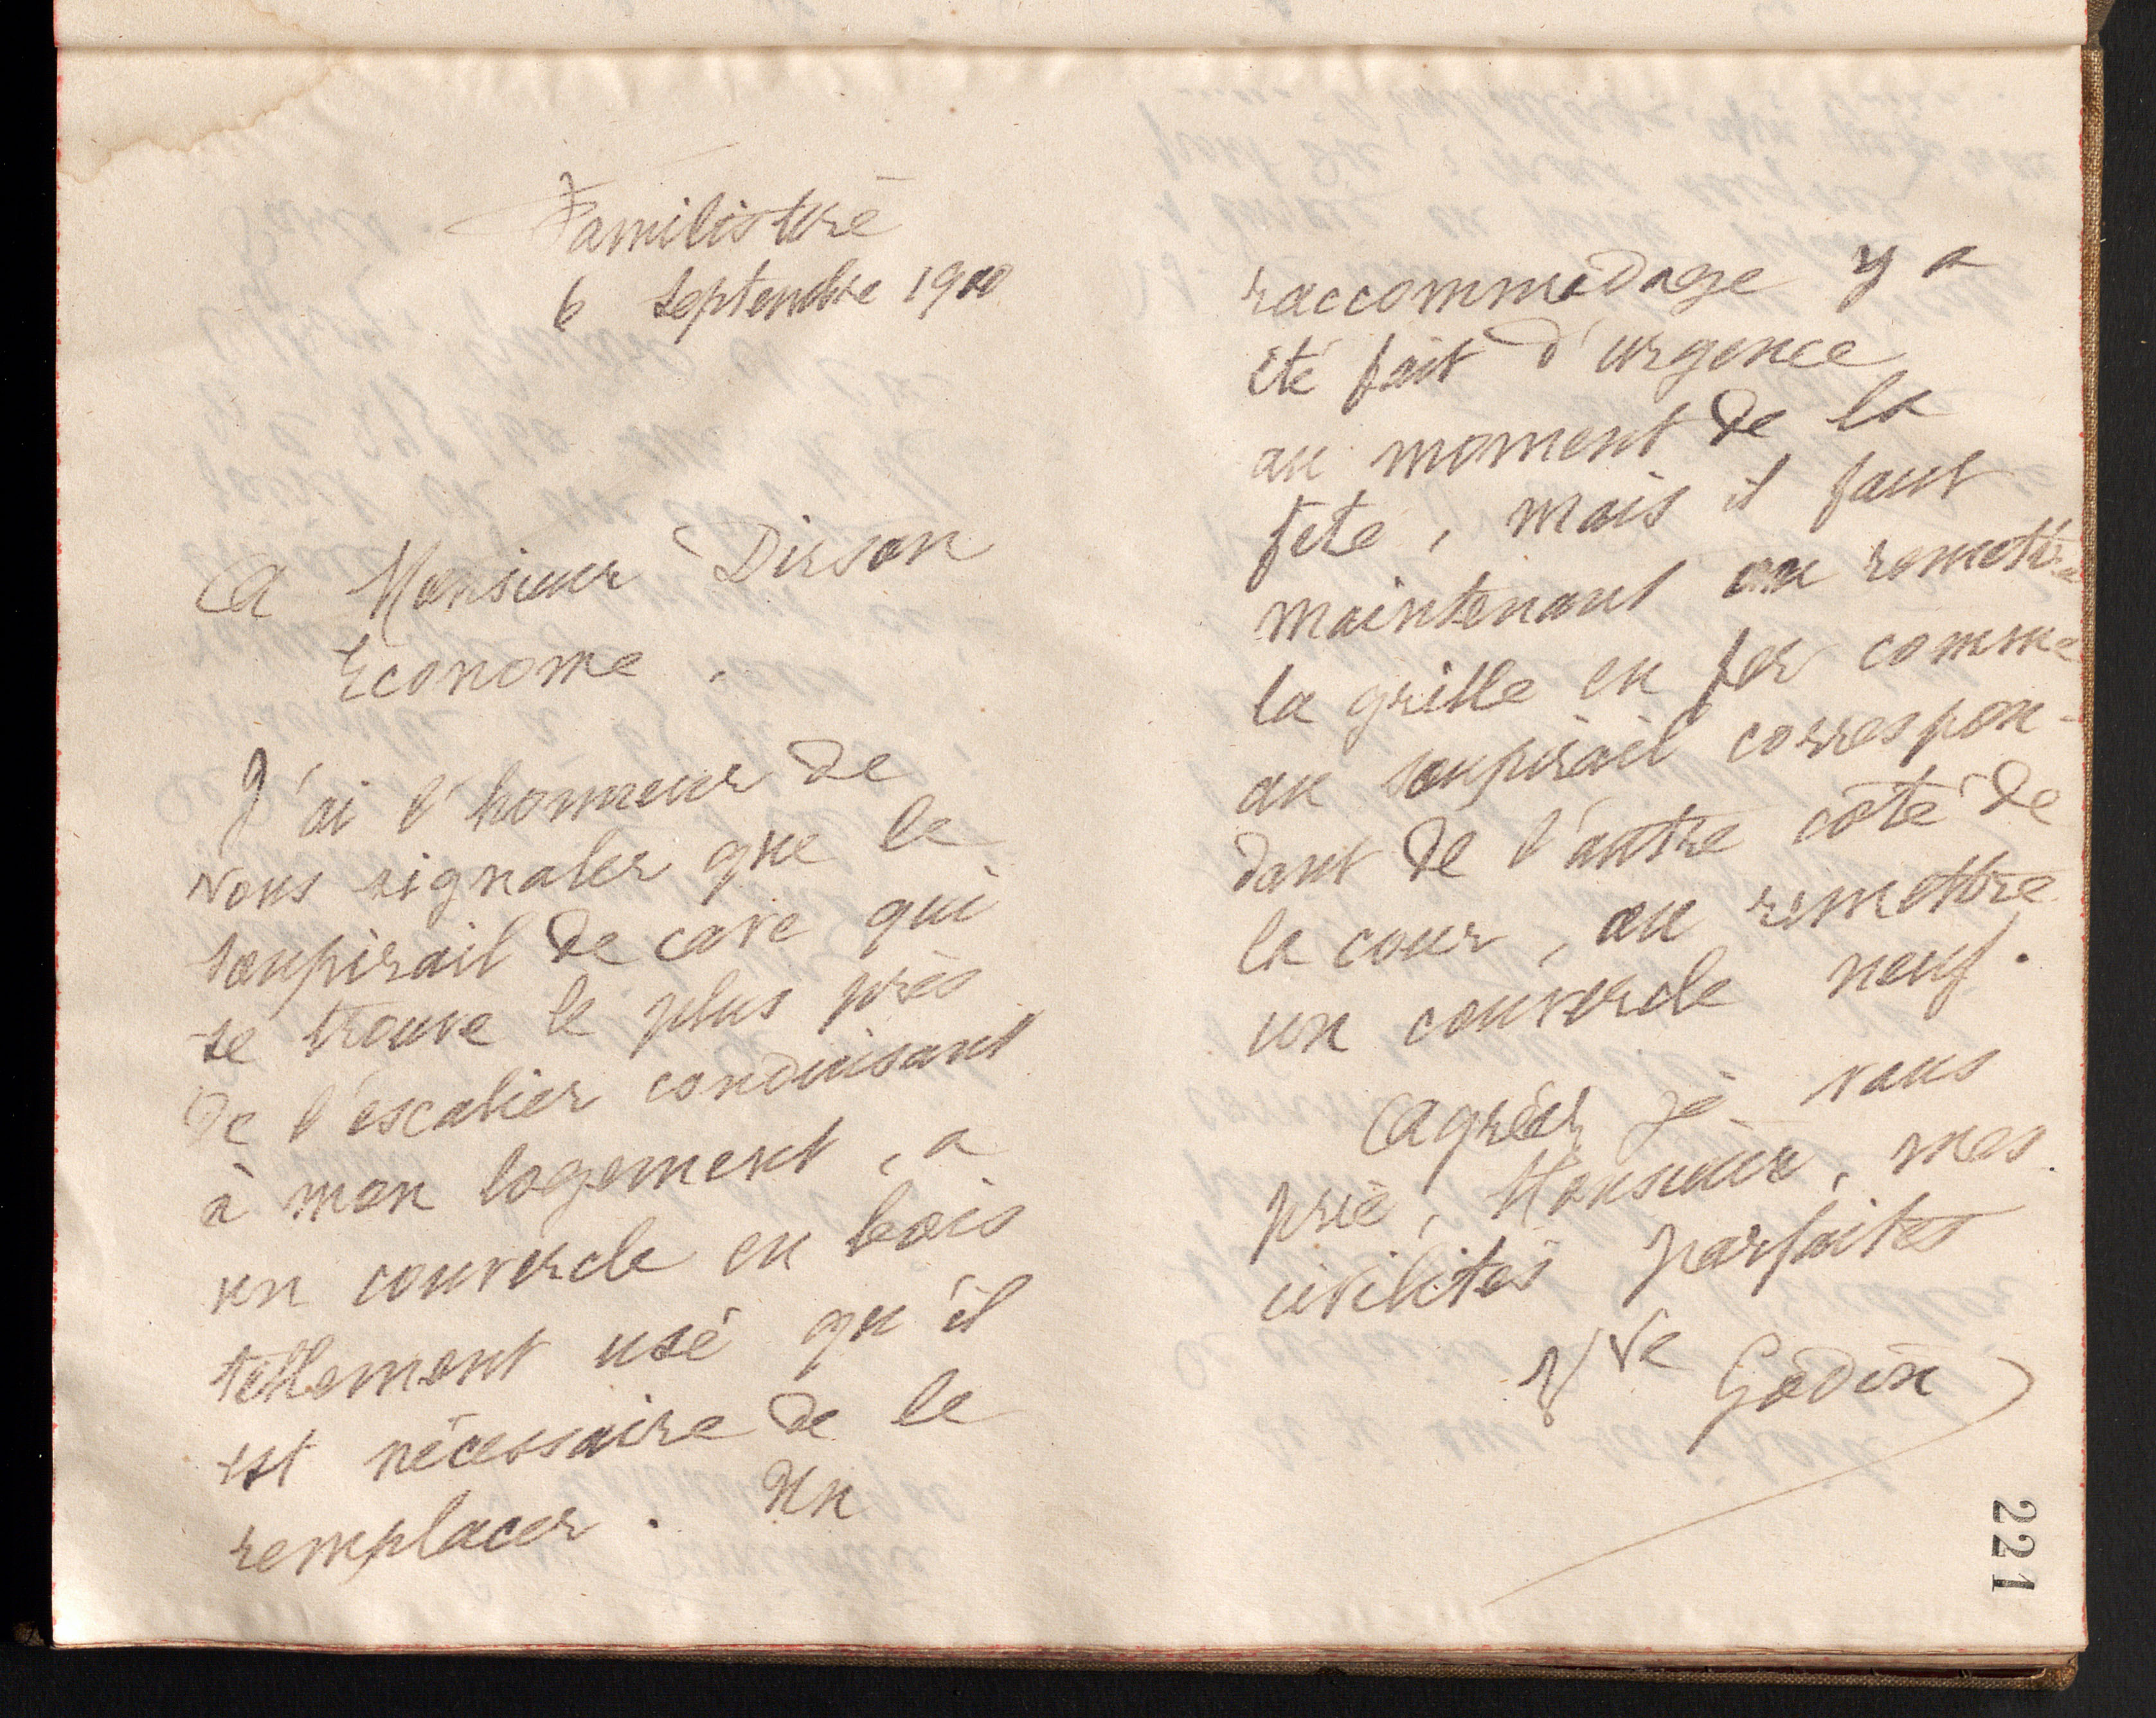 Familistère
6 septembre 1900
A Monsieur Dirson
Econome.
J'ai l'honneur de
vous signaler que le
soupirail de cave qui
se trouve le plus près
de l'escalier conduisant
à mon logement, a
un couvercle en bois
tellement usé qu'il
est nécessaire de le
remplacer. Un
raccommodage y a
été fait d'urgence
au moment de la
fête, mais il faut
maintenant ou remettre
la grille en fer comme
au soupirail correspon-
dant de l'autre côté de
la cour, ou remettre
un couvercle neuf.
Agréer je vous
prie, Monsieur, mes
civilités parfaites
Vve Godin
221